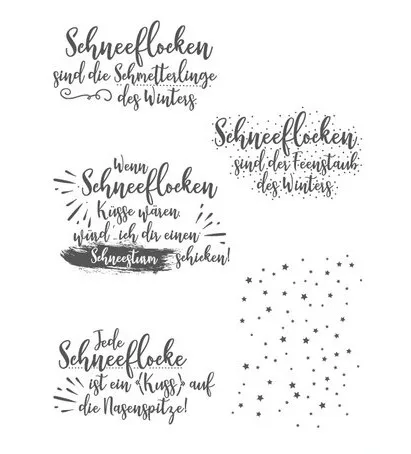 Schneeflocken
sind die Schmetterlinge
des Winters.
Schneeflocken
sind der Feenstaub
des Winters
Wenn
Schneeflocken
Küsse wären,
würd ich dir einen
Schneesturm schicken!
Jede
Schneeflocke
ist ein {Kuss} auf
die Nasenspitze!